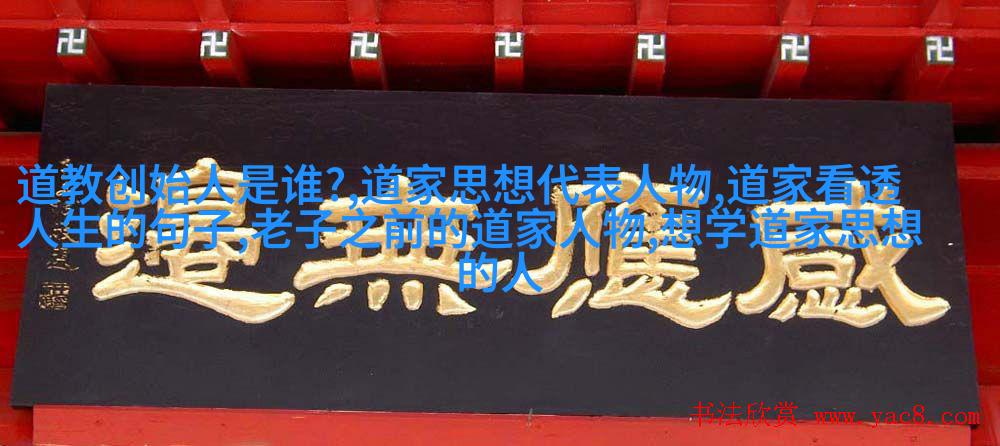 道教创始人是谁?,道家思想代表人物,道家看透
人生的句子,老子之前的道家人物,想学道家思想
的人
感應無
书法欣赏 www.yac8.com